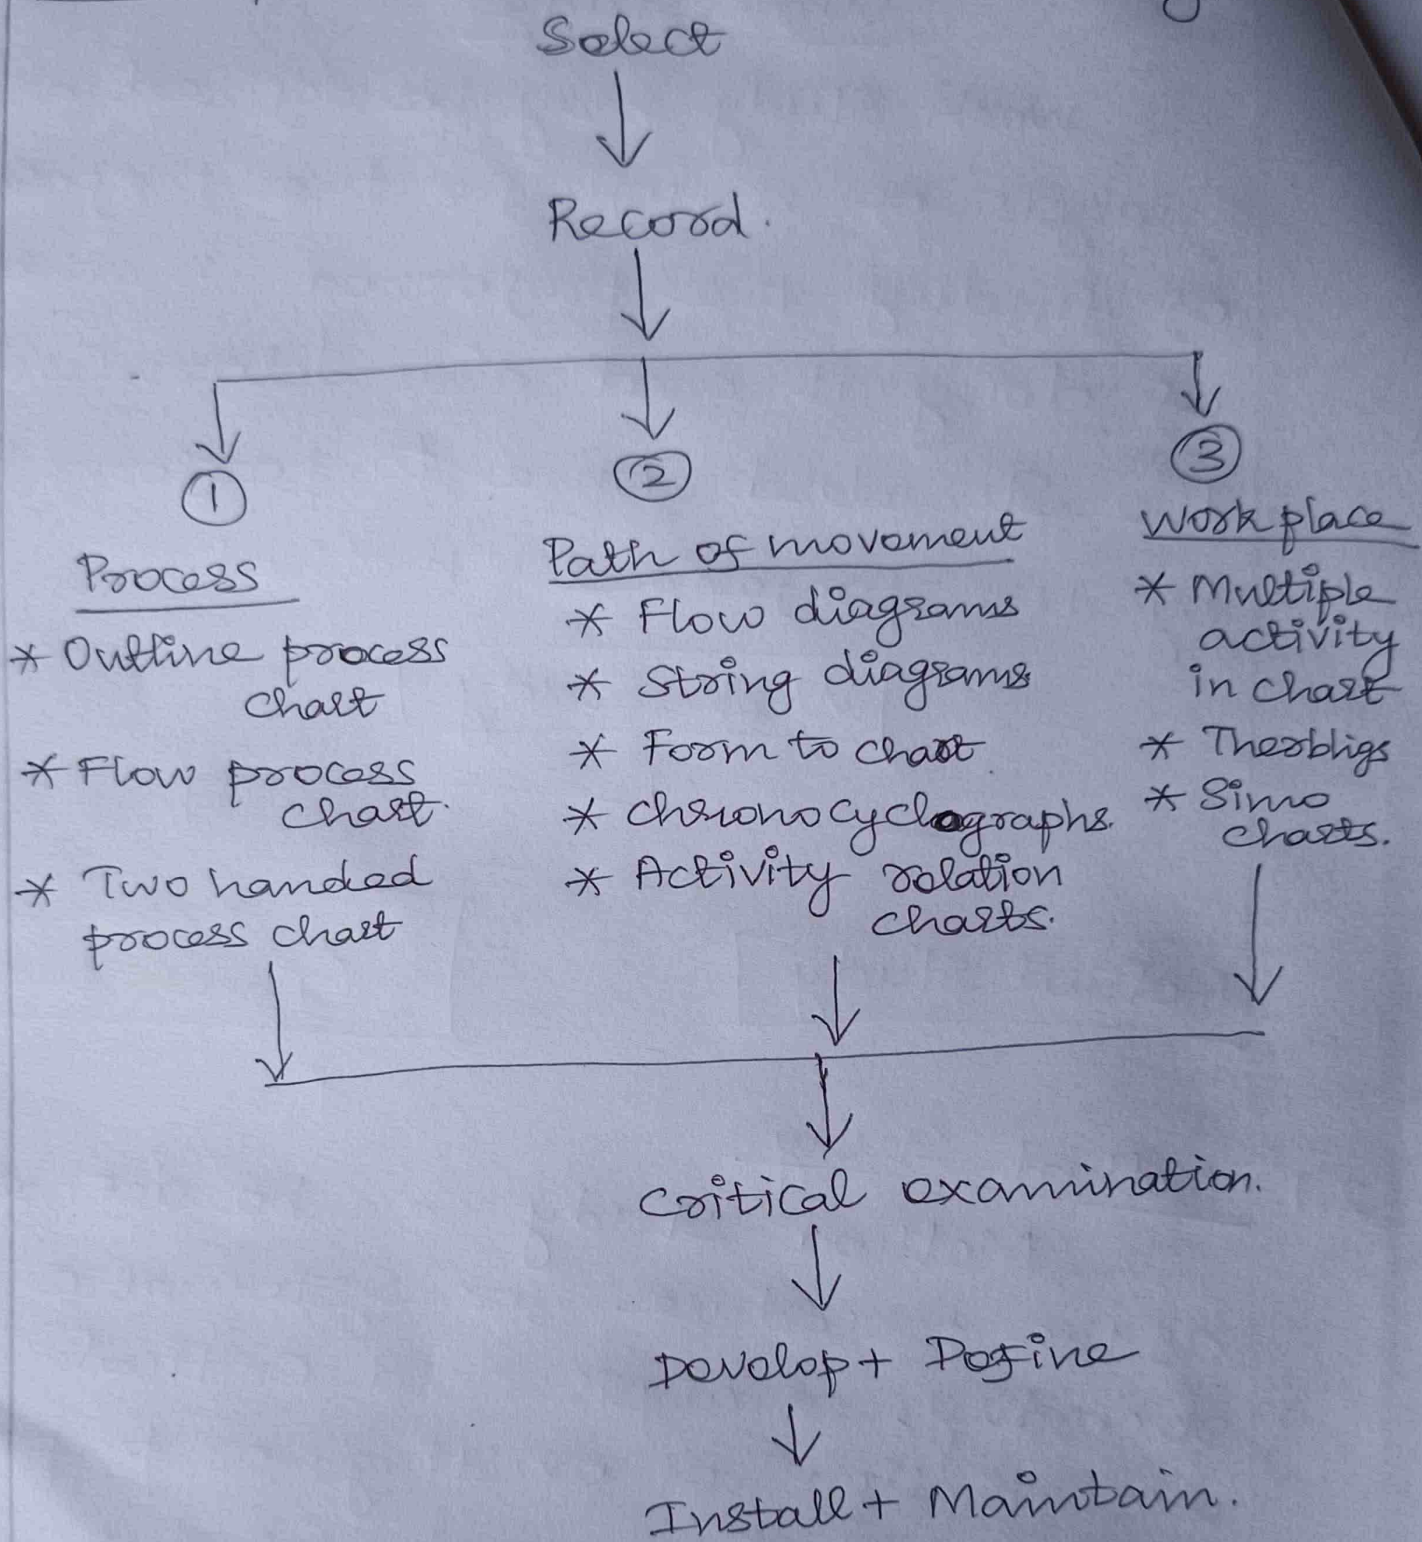 Select
Record.
1
2
3
Process
* Outline process
chart
* Flow process
chart.
* Two handed
process chart
Path of movement
* Flow diagrams
* String diagrams
* Form to chart
* Chronocyclographs.
* Activity relation
charts.
Work place
* Multiple
activity
in chart
* Therbligs
* Simo
charts.
Critical examination.
Develop + Define
Install + Maintain.